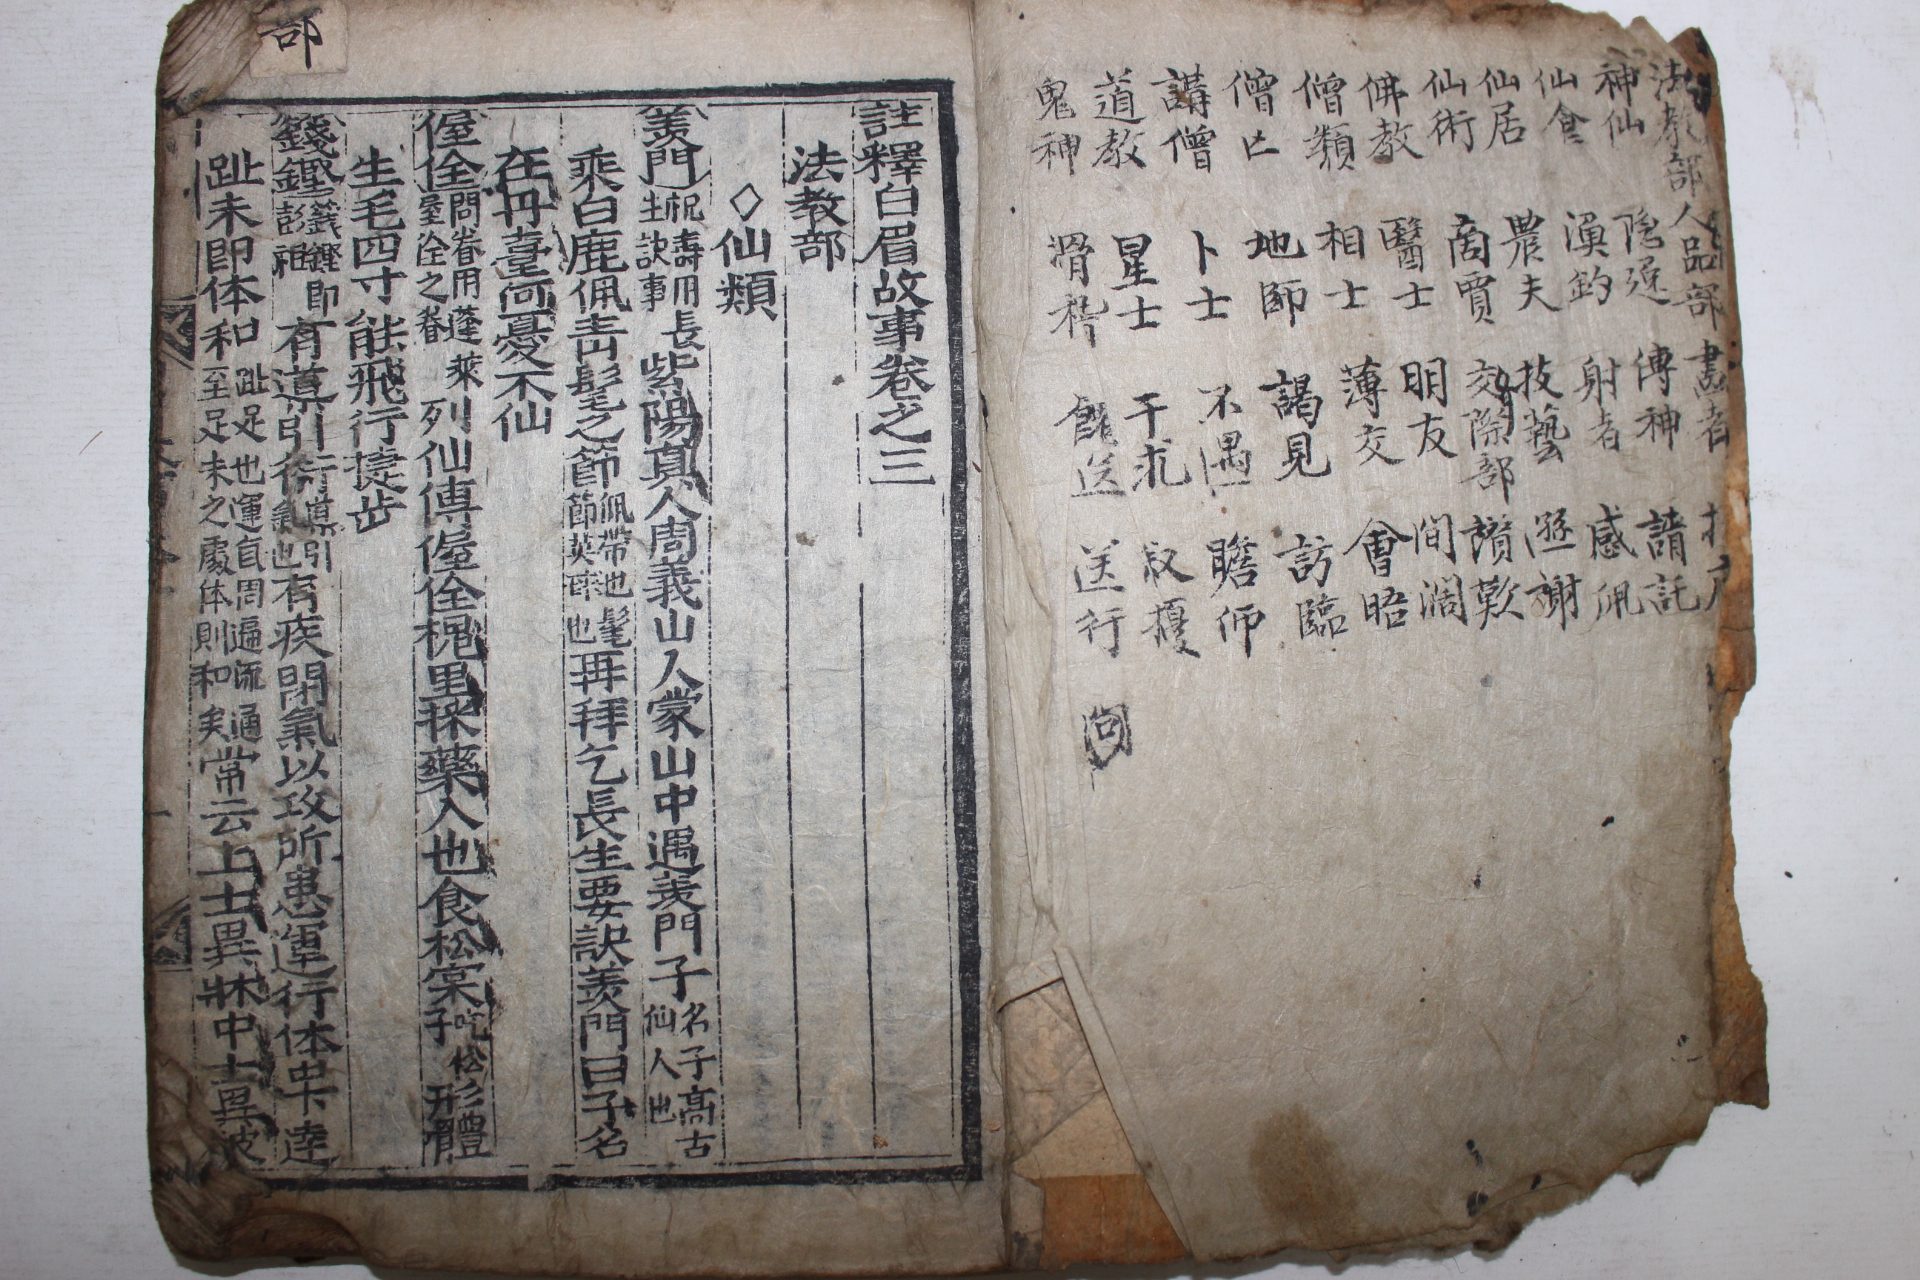 法教部 人品部 畵者
神仙 隐逸 傳神 請託
仙會 漁釣 射者 感佩
仙居 農夫 技藝 遜謝
仙術 商賈 交際部 讃歎
佛教 醫士 明友 間濶
僧類 相士 薄交 會晤
僧亡 地師 謁見 訪臨
講僧 卜士 不遇 瞻仰
道教 星士 干求 叔擾
鬼神 滑稽 餽送 送行
註釋白眉故事卷之三
法教部
◇仙類
羨門 祝壽用長生訣事 紫陽真人周義山人蒙山中遇羨門子 名子高古仙人也
乘白鹿佩青髦之節 佩帶也髦節英 也 再拜乞長生要訣羨門曰子名
在丹臺何憂不仙
偓佺 問眷用蓬萊偓佺之眷 列仙傳偓佺槐里採藥人也食松宲子 松 形體
生毛四寸能飛行捷步
籛鏗 籛鏗即彭祖 有導引術 導引氣也 有疾閉氣以攻所患運行体中下逹
趾未即体和 趾足也運氣周遍流通至足末之處体則和矣 常云上士異牀中士異被
部